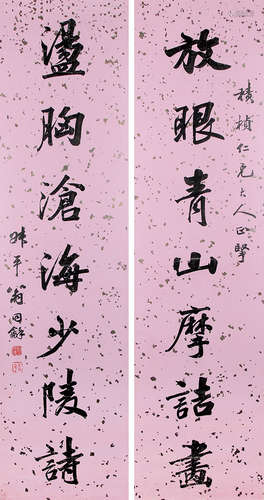 放眼青山摩詰畫
積楨仁兄大人正擘
盪胸滄海少陵詩
叔平翁同龢